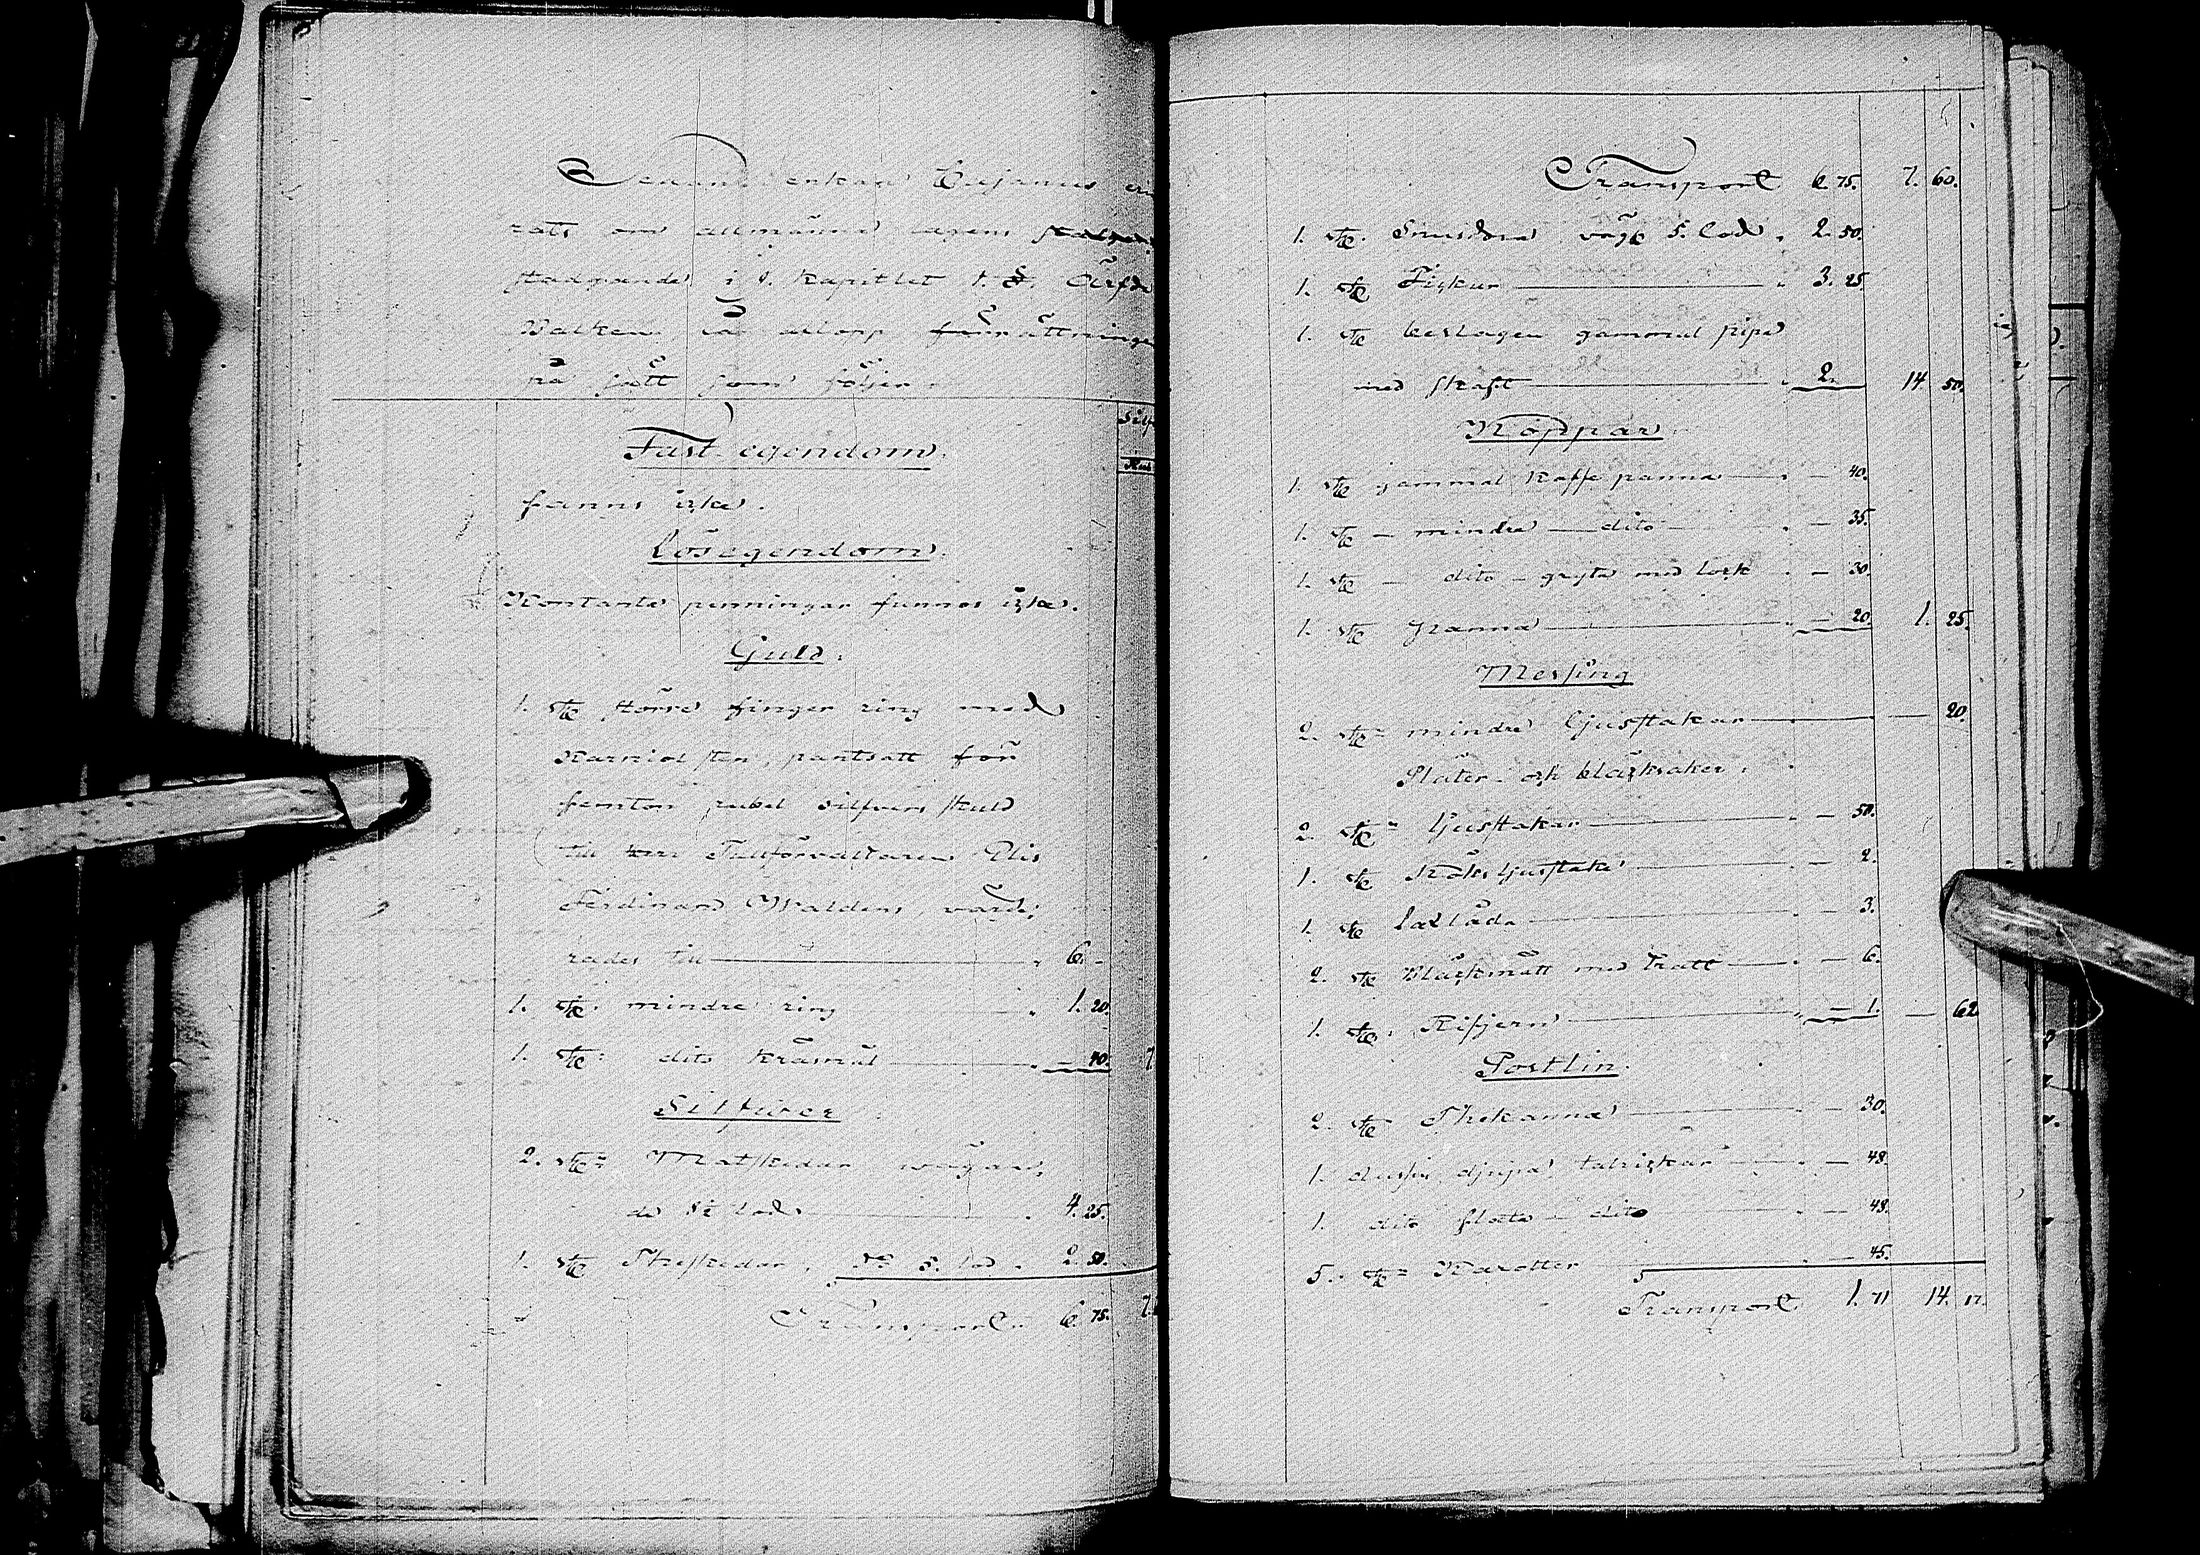 Sedan enkan
rats om allmänna lagens
stadgande i 9. Kapitlet 1. §. Ärfda
Balken, så aflopp förrättningen
på sätt som följer.
Silf
Fast egendom.
fanns icke.
Lösegendom.
Kontanta penningar funnos icke.
Guld.
1. st. större finger ring med
Karniol sten, pantsatt för
femton rubel silfvers skuld
till herr Tullförvaltaren Elis
Ferdinand Waldens, värde;
rades till 6. -
1. st. mindre ring 1. 20.
1. st. dito Kråsnål - 40. 7
Silfwer
2. st. Matskedar wägan;
de 8½ lod 4. 25.
1. st. Theskedar, 5. lod. 2. 50.
Transport 6. 75. 7.
Transport 6. 75. 7. 60.
1. st. Snusdosa vägt 5. lod. 2. 50.
1. st. 3. 25.
1. st. beslagen gammal pipa
med skaft 2. 14. 50.
Koppar.
1. st. gammal Kaffe panna - 40.
1. st. - mindre - dito - - 35.
1. st. - dito - gryta med lock - 30.
1. st. panna - 20. 1. 25.
Messing
2. st. mindre ljusstakar - 20.
Plåter- och bläcksaker.
2. st. ljusstakar - 50.
1. st. Köksljusstake - 2.
1. st. låda - 3.
2. st. Bläckmått med tratt - 6.
1. st. Rifjern - 1. - 62.
Postlin.
2. st. Thekanna - 30.
1. dussin djupa talrickar - 48.
1. dito flata - dito - 48.
5. st. Karotter - 45.
Transport 1. 71 14. 17.